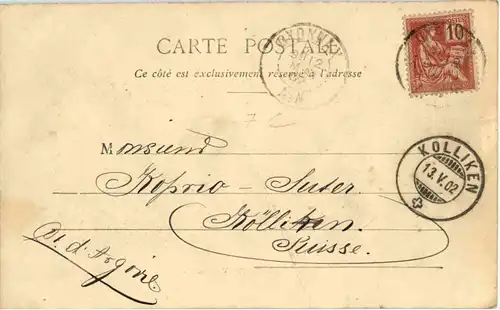 CARTE POSTALE
Ce côté est exclusivement réservé à l'adresse
OYONNAX
AIN
10
7 c
KÖLLIKEN
13.V.02
Monsieur
Suter
Kölliken.
Suisse.